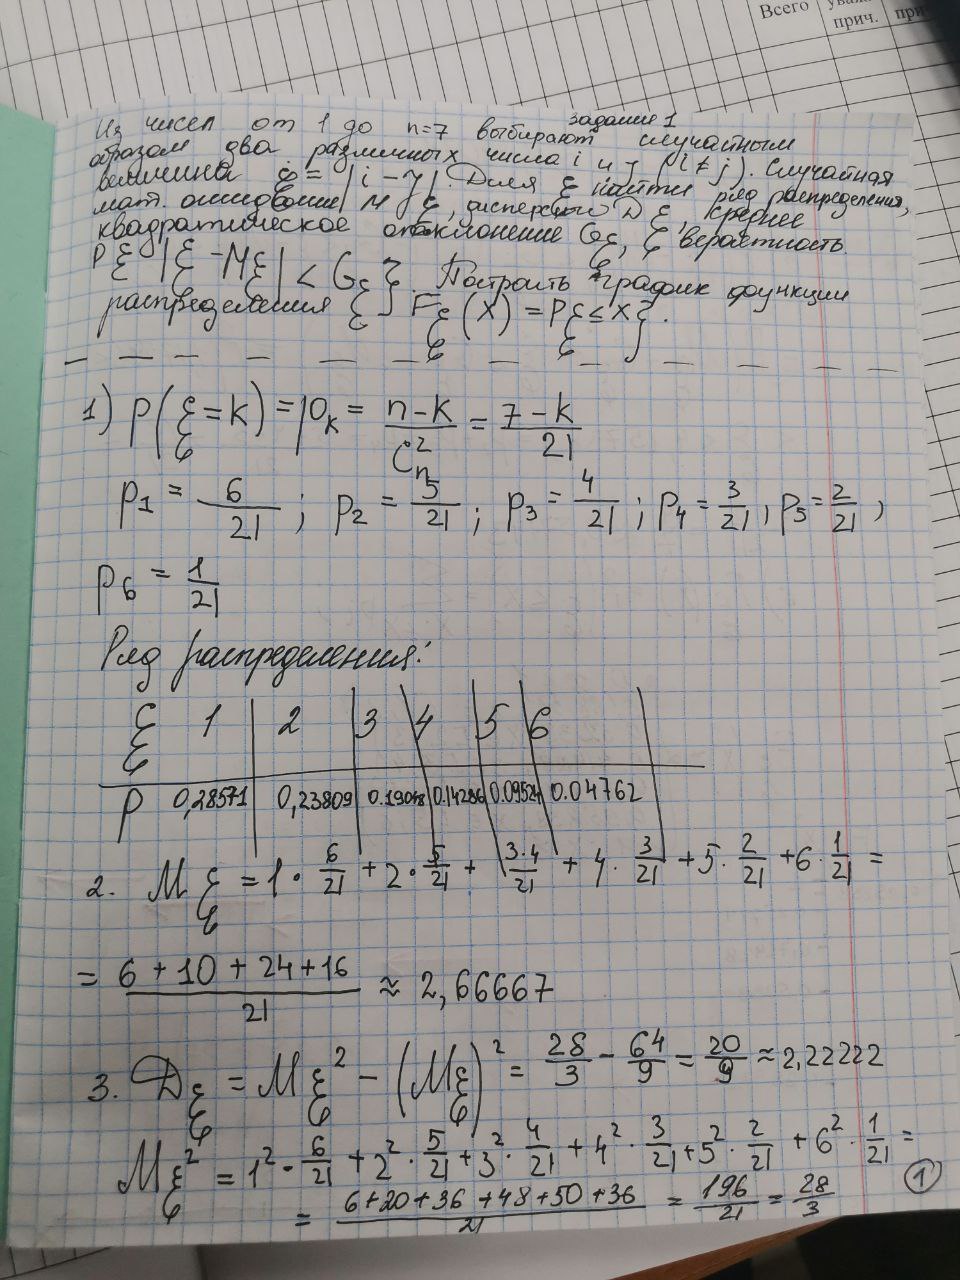 Всего
прич.
при
задание 1
Из чисел от 1 до n=7 выбирают случайным
образом два различных числа i и j (i ≠ j). Случайная
величина ξ = |i - j|. Для ξ найти ряд распределения,
мат. ожидание Mξ, дисперсию Dξ, среднее
квадратическое отклонение Gξ, вероятность
P{|ξ - Mξ| < Gξ}. Построить график функции
распределения ξ Fξ(x) = P{ξ ≤ x}.
1) P(ξ = k) = p_k = (n - k)/C_n^2 = (7 - k)/21
p1 = 6/21 ; p2 = 5/21 ; p3 = 4/21 ; p4 = 3/21 , p5 = 2/21 ,
p6 = 1/21
Ряд распределения:
ξ 1 2 3 4 5 6
P 0,28571 0,23809 0.19048 0.14286 0.09524 0.04762
2. Mξ = 1 · 6/21 + 2 · 5/21 + 3·4/21 + 4 · 3/21 + 5 · 2/21 + 6 · 1/21 =
= (6 + 10 + 24 + 16)/21 ≈ 2,66667
3. Dξ = Mξ² - (Mξ)² = 28/3 - 64/9 = 20/9 ≈ 2,22222
Mξ² = 1² · 6/21 + 2² · 5/21 + 3² · 4/21 + 4² · 3/21 + 5² · 2/21 + 6² · 1/21 =
= (6 + 20 + 36 + 48 + 50 + 36)/21 = 196/21 = 28/3
1